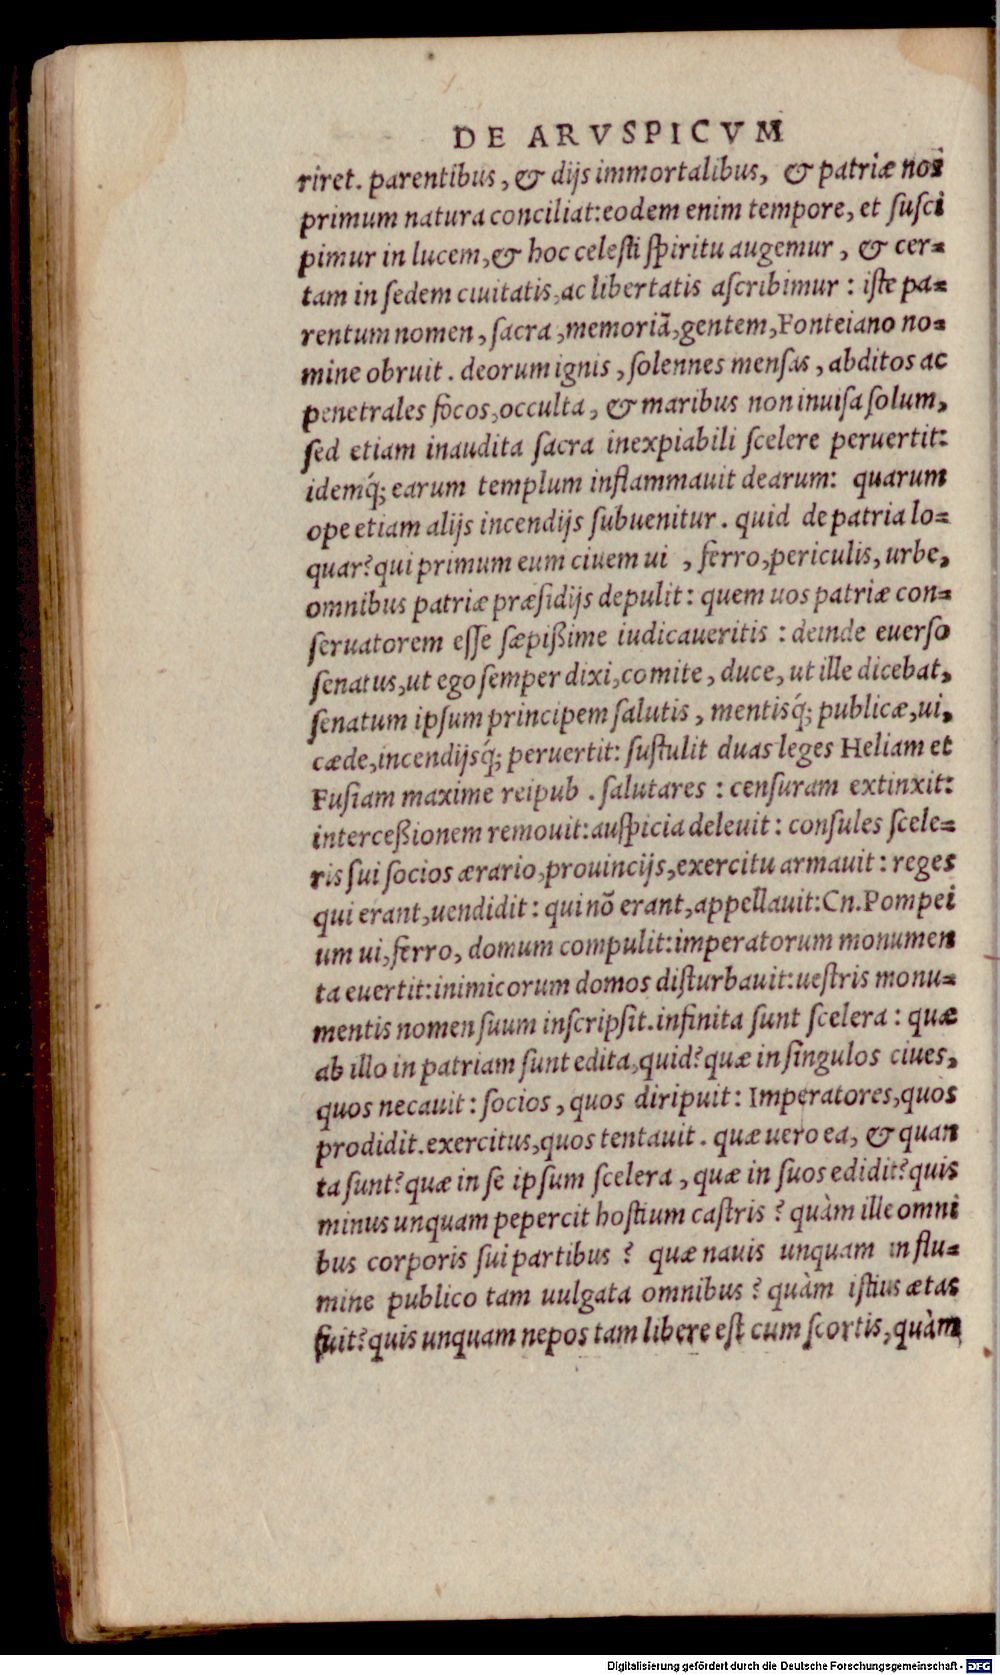 DE ARVSPICVM
riret. parentibus, & dijs immortalibus, & patriæ nos
primum natura conciliat: eodem enim tempore, et ſuſci
pimur in lucem, & hoc celeſti ſpiritu augemur, & cer=
tam in ſedem ciuitatis, ac libertatis aſcribimur: iſte pa=
rentum nomen, ſacra, memoriã, gentem, Fonteiano no=
mine obruit. deorum ignis, ſolennes menſas, abditos ac
penetrales focos, occulta, & maribus non inuiſa ſolum,
ſed etiam inaudita ſacra inexpiabili ſcelere peruertit:
idemq́; earum templum inflammauit dearum: quarum
ope etiam alijs incendijs ſubuenitur. quid de patria lo=
quar? qui primum eum ciuem ui, ferro, periculis, urbe,
omnibus patriæ præſidijs depulit: quem uos patriæ con=
ſeruatorem eſſe ſæpißime iudicaueritis: deinde euerſo
ſenatus, ut ego ſemper dixi, comite, duce, ut ille dicebat,
ſenatum ipſum principem ſalutis, mentisq́; publicæ, ui,
cæde, incendijsq́; peruertit: ſuſtulit duas leges Heliam et
Fuſiam maxime reipub. ſalutares: cenſuram extinxit:
interceßionem remouit: auſpicia deleuit: conſules ſcele=
ris ſui ſocios ærario, prouincijs, exercitu armauit: reges
qui erant, uendidit: qui nõ erant, appellauit: Cn. Pompei
um ui, ferro, domum compulit: imperatorum monumen
ta euertit: inimicorum domos diſturbauit: ueſtris monu=
mentis nomen ſuum inſcripſit. infinita ſunt ſcelera: quæ
ab illo in patriam ſunt edita, quid? quæ in ſingulos ciues,
quos necauit: ſocios, quos diripuit: Imperatores, quos
prodidit. exercitus, quos tentauit. quæ uero ea, & quan
ta ſunt? quæ in ſe ipſum ſcelera, quæ in ſuos edidit? quis
minus unquam pepercit hoſtium caſtris? quàm ille omni
bus corporis ſui partibus? quæ nauis unquam in flu=
mine publico tam uulgata omnibus? quàm iſtius ætas
fuit? quis unquam nepos tam libere eſt cum ſcortis, quàm
Digitalisierung gefördert durch die Deutsche Forschungsgemeinschaft - DFG